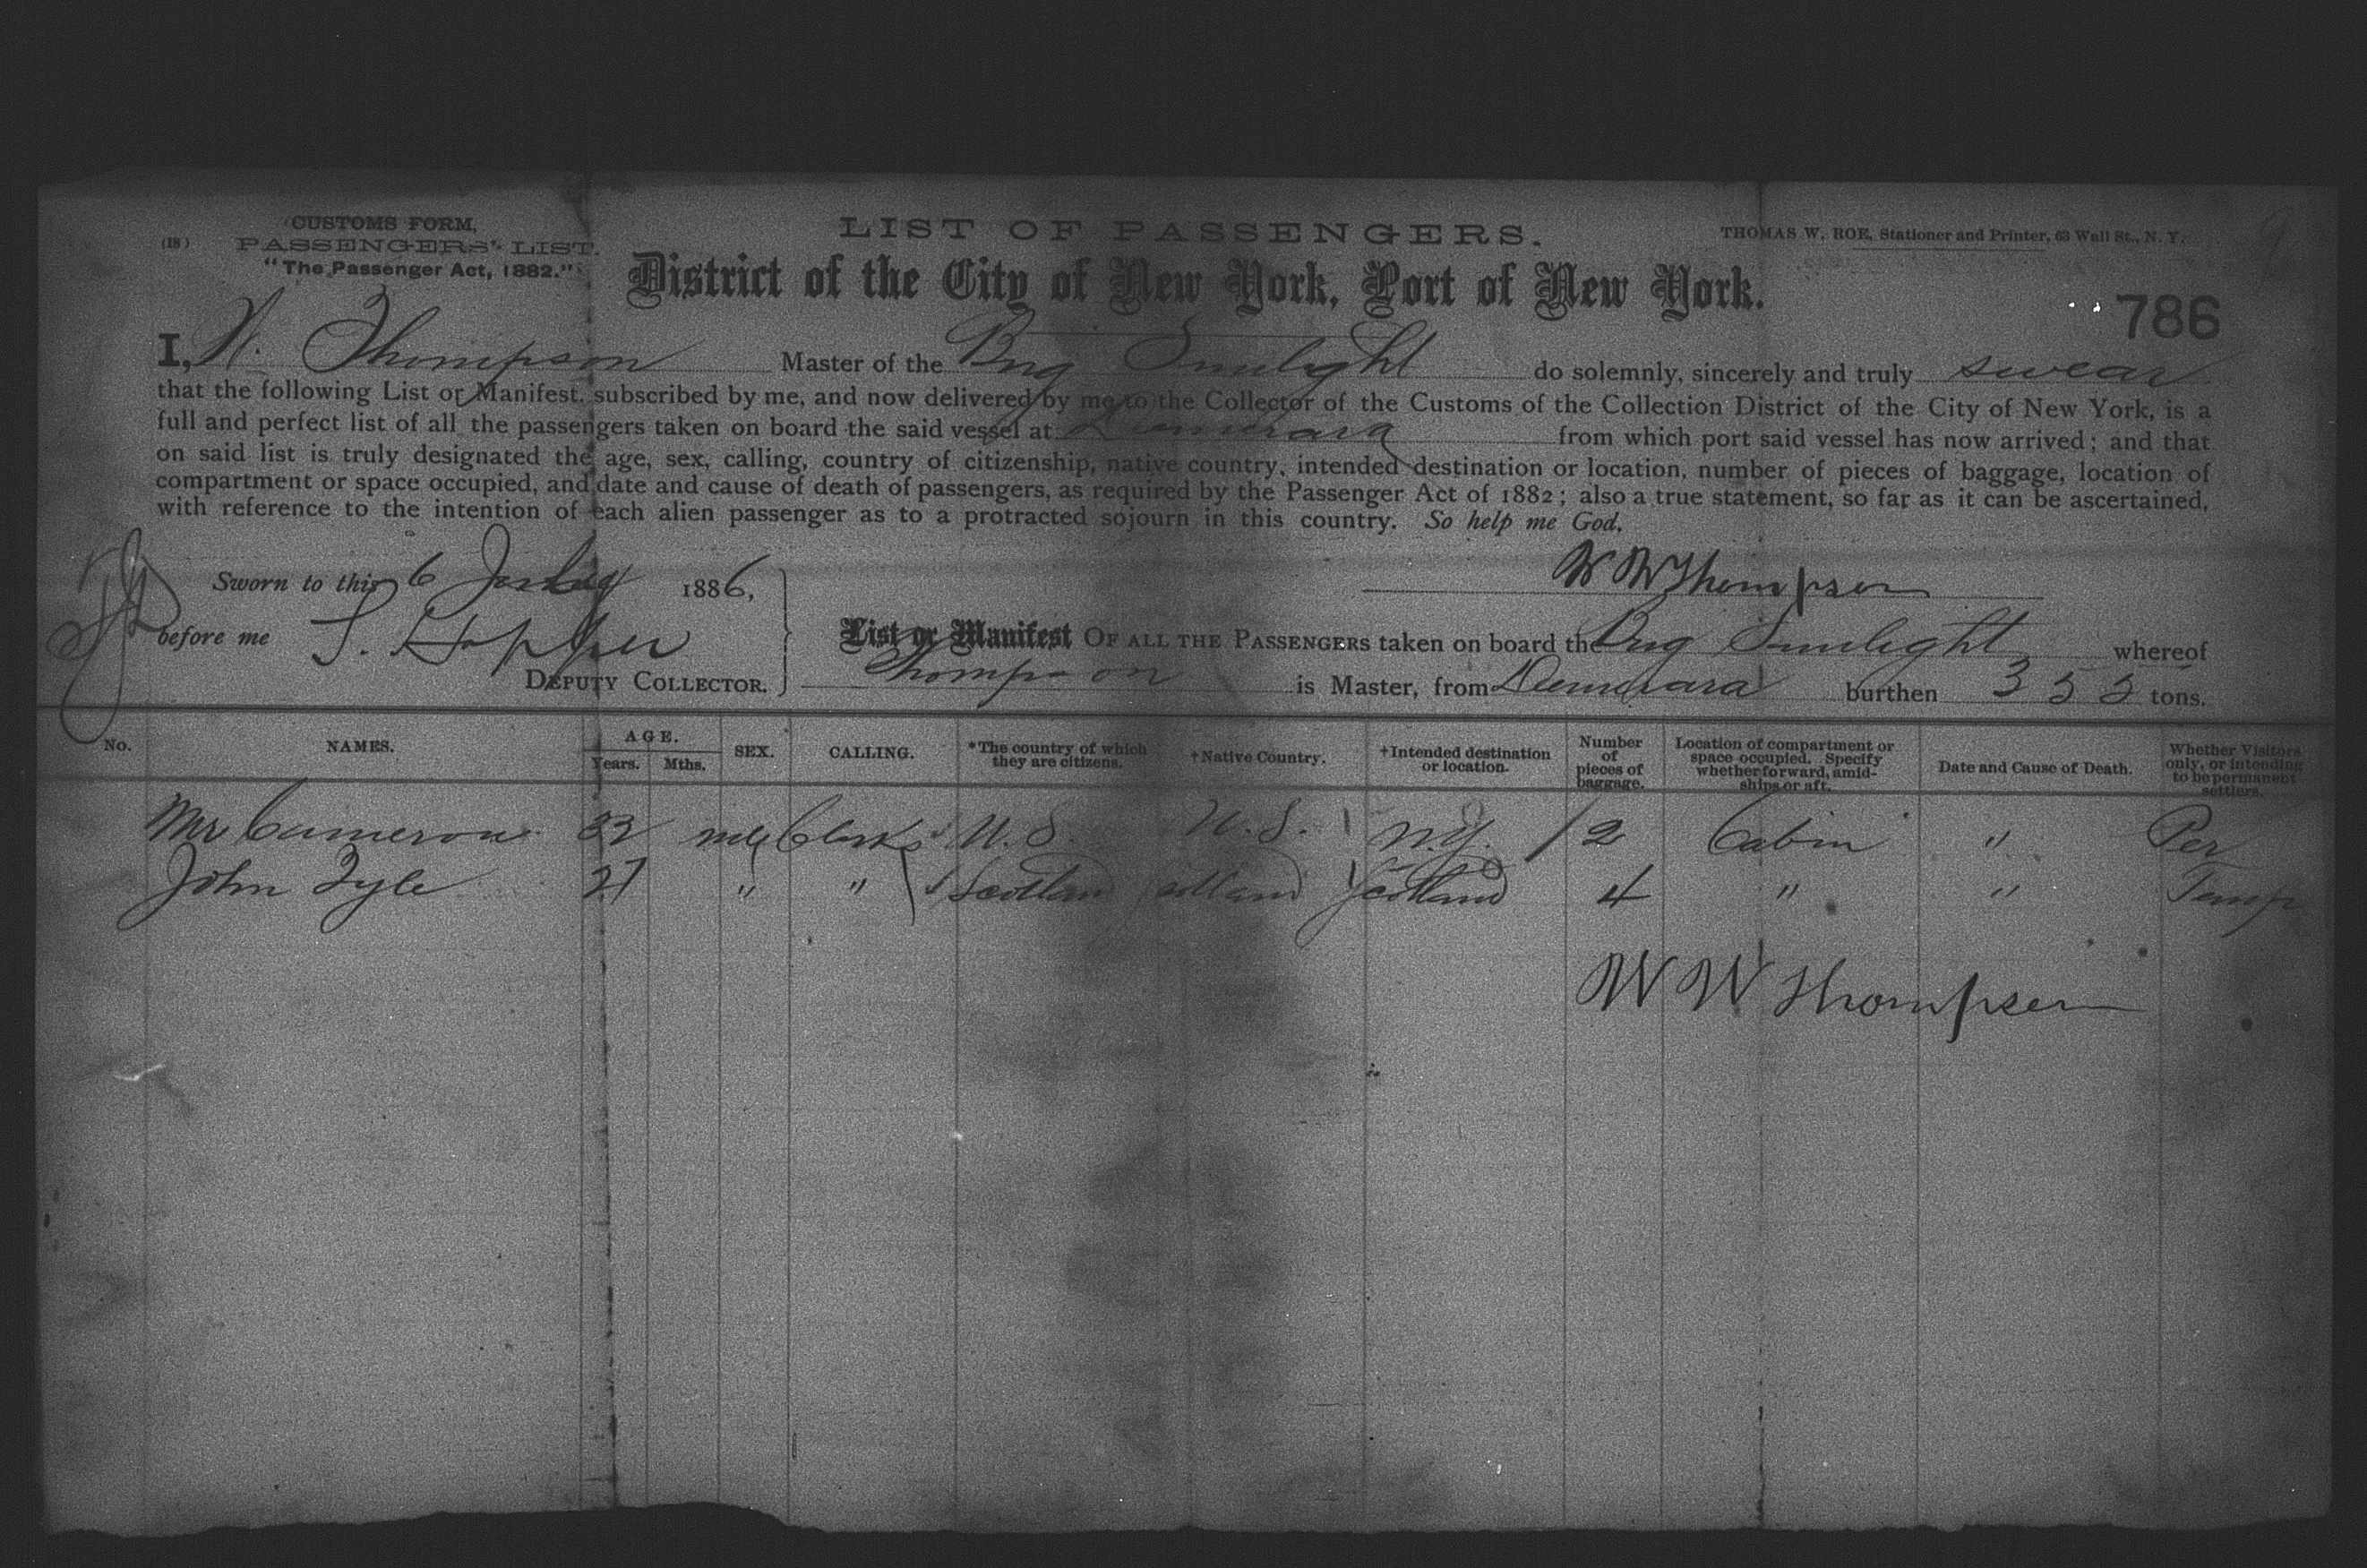 CUSTOMS FORM,
(18) PASSENGERS' LIST.
"The Passenger Act, 1882."
LIST OF PASSENGERS.
THOMAS W. ROE, Stationer and Printer, 63 Wall St., N. Y.
District of the City of New York, Port of New York.
786
I, W. Thompson Master of the Brig Sunlight do solemnly, sincerely and truly swear
that the following List or Manifest, subscribed by me, and now delivered by me to the Collector of the Customs of the Collection District of the City of New York, is a
full and perfect list of all the passengers taken on board the said vessel at Demerara from which port said vessel has now arrived; and that
on said list is truly designated the age, sex, calling, country of citizenship, native country, intended destination or location, number of pieces of baggage, location of
compartment or space occupied, and date and cause of death of passengers, as required by the Passenger Act of 1882; also a true statement, so far as it can be ascertained,
with reference to the intention of each alien passenger as to a protracted sojourn in this country. So help me God.
Sworn to this 6 1886,
W W Thompson
before me S. Hopper
DEPUTY COLLECTOR.
List or Manifest OF ALL THE PASSENGERS taken on board the Brig Sunlight whereof
Thompson is Master, from Demerara burthen 355 tons.
No. NAMES. AGE. Years. Mths. SEX. CALLING. *The country of which they are citizens. †Native Country. †Intended destination or location. Number of pieces of baggage. Location of compartment or space occupied. Specify whether forward, amidships or aft. Date and Cause of Death. Whether Visitors only, or intending to be permanent settlers.
Mr Cameron 32 male Clerk U.S. U.S. N.Y. 2 Cabin " Per
John Fyle 27 " " Scotland Scotland Scotland 4 " " Temp
W W Thompson